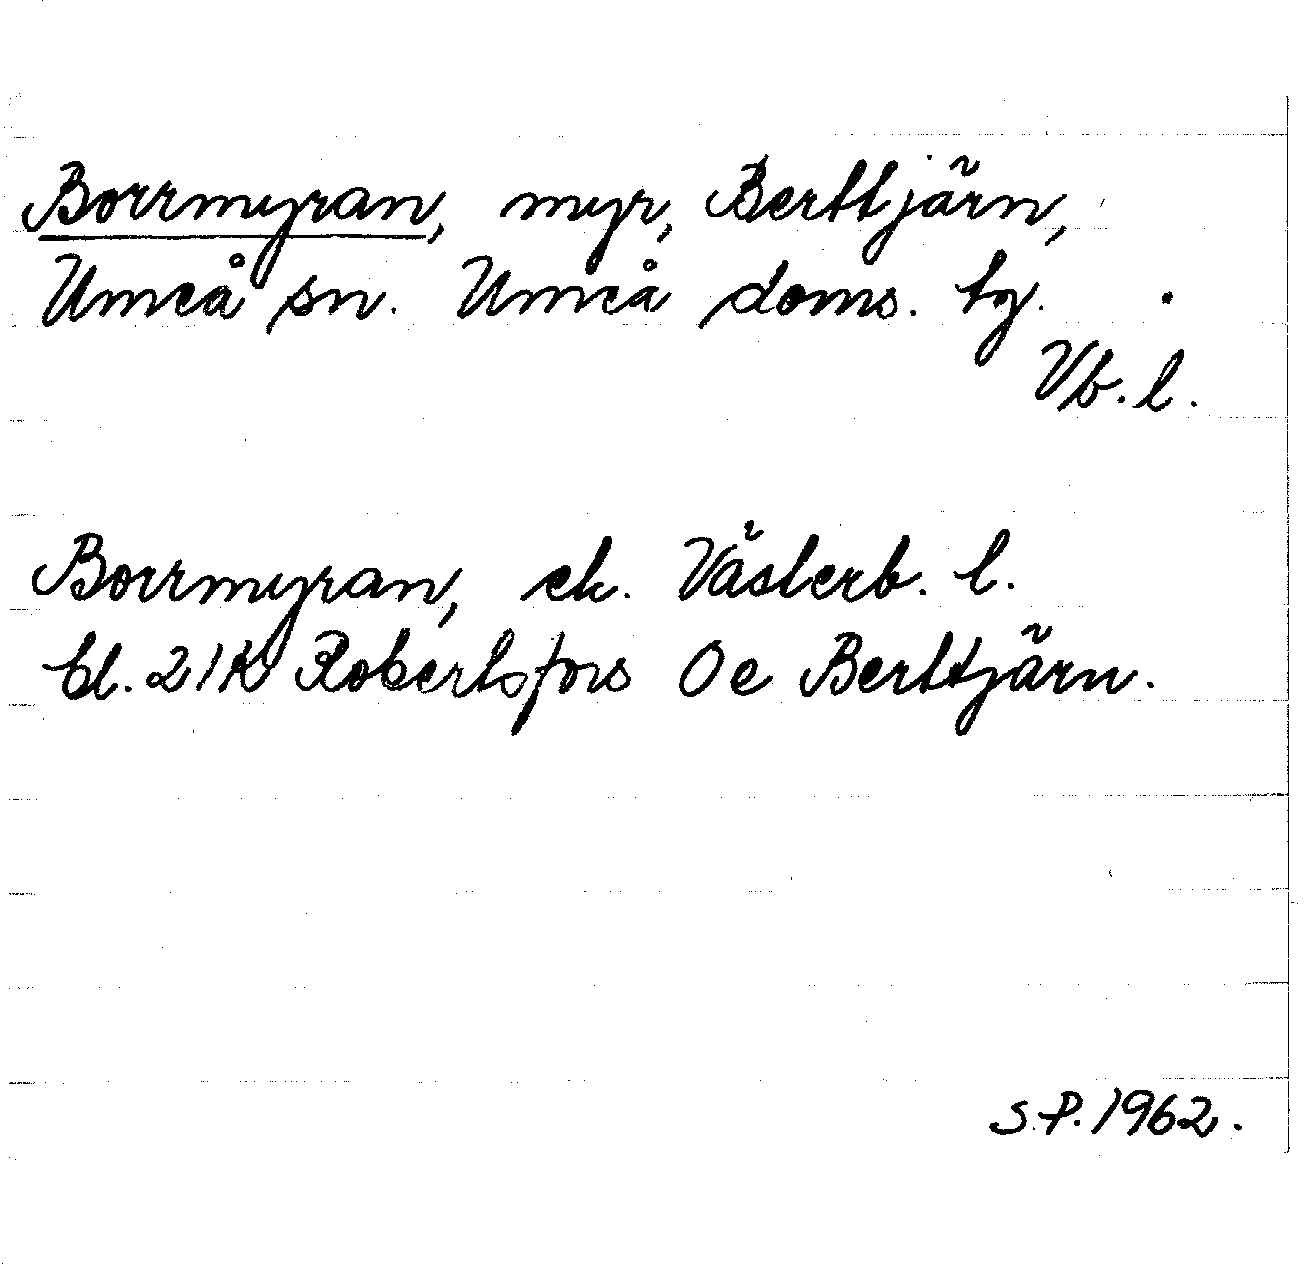 Borrmyran, myr, Berttjärn,
Umeå sn. Umeå doms. tg.
Vb. l.
Borrmyran, ek. Västerb. l.
bl. 21K Robertsfors Oe Berttjärn.
S.P. 1962.